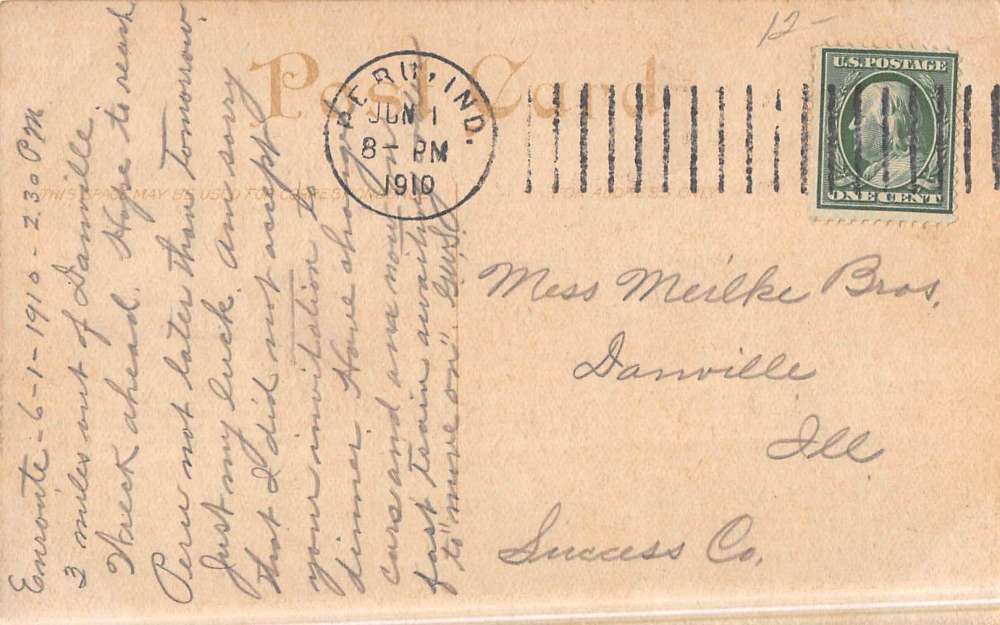 12-
Post Card
PERU, IND.
JUN 1
8- PM
1910
U.S. POSTAGE
ONE CENT
THIS SPACE MAY BE USED FOR CORRESPONDENCE
FOR ADDRESS ONLY
Enroute-6-1-1910-2.30 PM
3 miles out of Danville.
Wreck ahead. Hope to reach
Peru not later than tomorrow.
Just my luck. Am sorry
that I did not accept
your invitation to
dinner. Have changed
cars and am now on
fast train awaiting
to "move on".
Mess Meilke Bros.
Danville
Ill
Success Co.